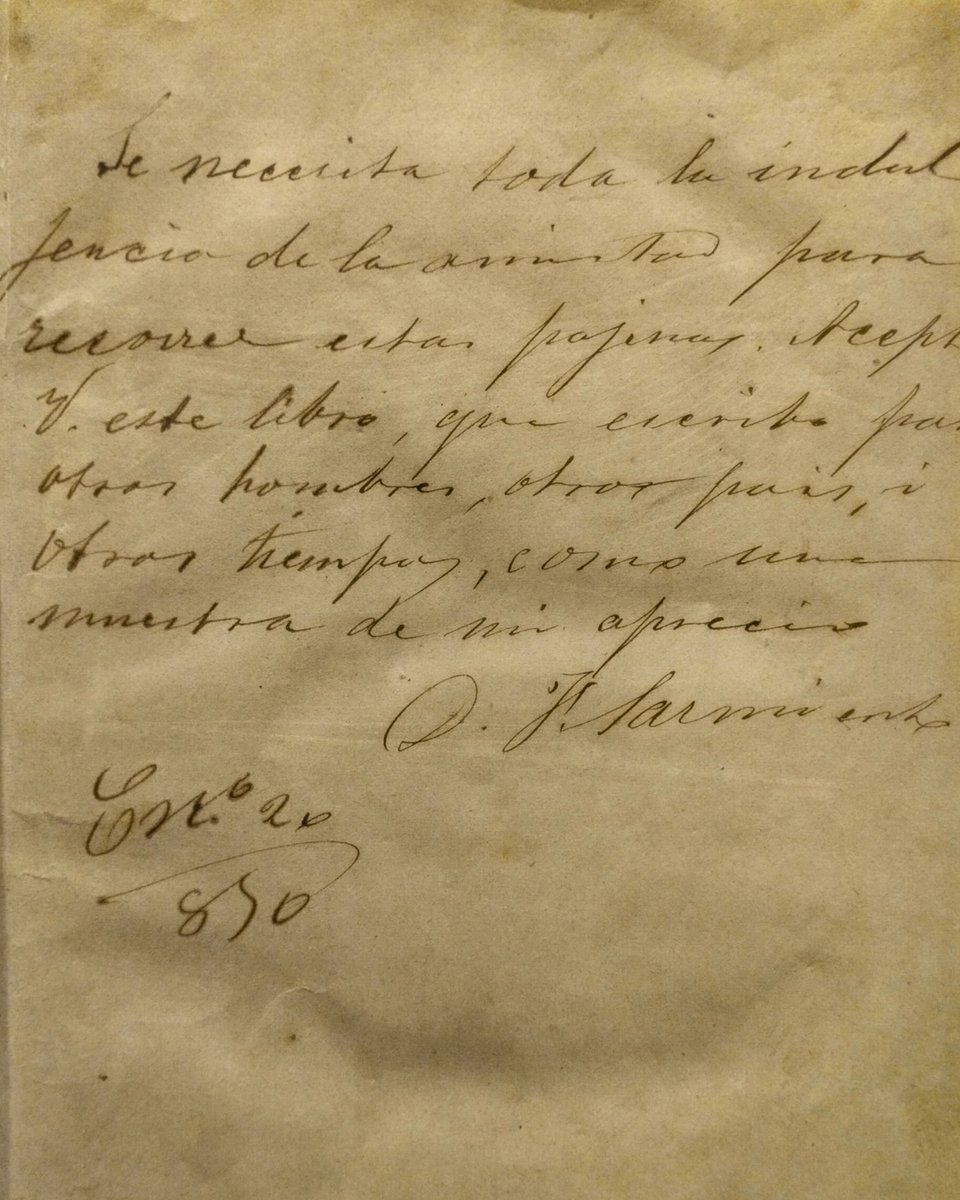 Se necesita toda la indul
jencia de la amistad para
recorrer estas pajinas. Acept
V. este libro, que escribo par
otros hombres, otros pais, i
otros tiempos, como una
muestra de mi aprecio
D. F. Sarmiento
En.º 20
850